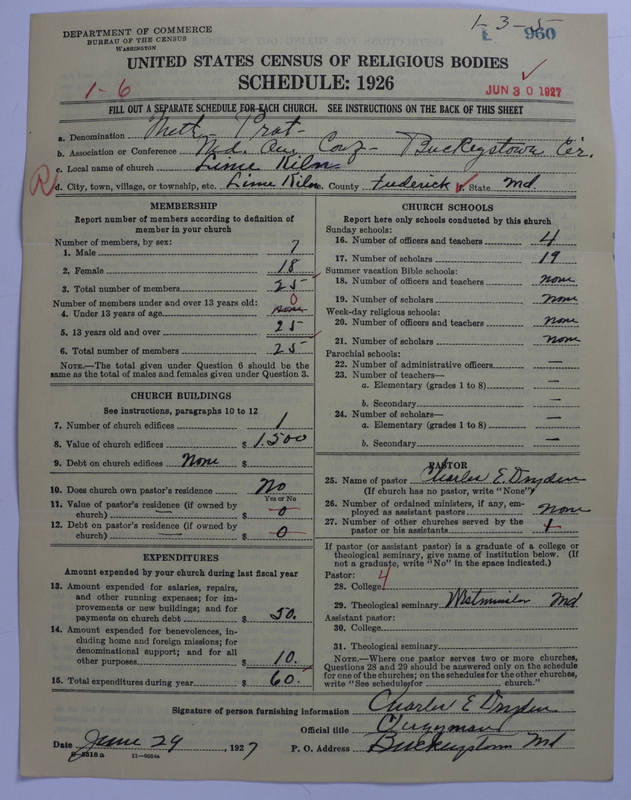 DEPARTMENT OF COMMERCE
BUREAU OF THE CENSUS
WASHINGTON
1-3-5
960
UNITED STATES CENSUS OF RELIGIOUS BODIES
SCHEDULE: 1926
1-6
JUN 30 1927
FILL OUT A SEPARATE SCHEDULE FOR EACH CHURCH. SEE INSTRUCTIONS ON THE BACK OF THIS SHEET
a. Denomination Meth- Prot-
b. Association or Conference Md. An. Conf- Buckeystown Cir.
c. Local name of church Lime Kiln
d. City, town, village, or township, etc. Lime Kiln e. County Frederick f. State Md.
MEMBERSHIP
Report number of members according to definition of
member in your church
Number of members, by sex:
1. Male 7
2. Female 18
3. Total number of members 25
Number of members under and over 13 years old: 0
4. Under 13 years of age none
5. 13 years old and over 25
6. Total number of members 25
NOTE.—The total given under Question 6 should be
same as the total of males and females given under Question 3.
CHURCH BUILDINGS
See instructions, paragraphs 10 to 12
7. Number of church edifices 1
8. Value of church edifices $ 1.500
9. Debt on church edifices None $
10. Does church own pastor's residence No
Yes or No
11. Value of pastor's residence (if owned by
church) $ 0
12. Debt on pastor's residence (if owned by
church) $ 0
EXPENDITURES
Amount expended by your church during last fiscal year
13. Amount expended for salaries, repairs,
and other running expenses; for im-
provements or new buildings; and for
payments on church debt $ 50.
14. Amount expended for benevolences, in-
cluding home and foreign missions; for
denominational support; and for all
other purposes $ 10.
15. Total expenditures during year $ 60.
CHURCH SCHOOLS
Report here only schools conducted by this church
Sunday schools:
16. Number of officers and teachers 4
17. Number of scholars 19
Summer vacation Bible schools:
18. Number of officers and teachers none
19. Number of scholars none
Week-day religious schools:
20. Number of officers and teachers none
21. Number of scholars none
Parochial schools:
22. Number of administrative officers —
23. Number of teachers—
a. Elementary (grades 1 to 8) —
b. Secondary —
24. Number of scholars—
a. Elementary (grades 1 to 8) —
b. Secondary —
PASTOR
25. Name of pastor Charles E. Dryden
(If church has no pastor, write "None")
26. Number of ordained ministers, if any, em-
ployed as assistant pastors none
27. Number of other churches served by the
pastor or his assistants
If pastor (or assistant pastor) is a graduate of a college or
theological seminary, give name of institution below. (If
not a graduate, write "No" in the space indicated.)
Pastor: 4
28. College
29. Theological seminary Westminster Md
Assistant pastor:
30. College
31. Theological seminary
NOTE.—Where one pastor serves two or more churches,
Questions 28 and 29 should be answered only on the schedule
for one of the churches; on the schedules for the other churches,
write "See schedule for church."
Signature of person furnishing information Charles E Dryden
Official title Clergyman
Date June 29, 1927 P. O. Address Buckeystown Md